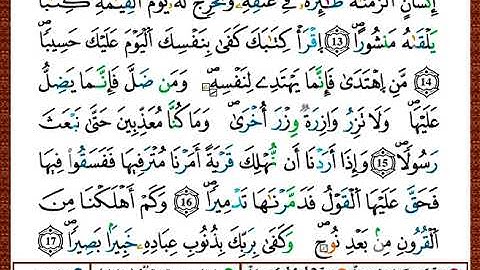 إِنسَٰنٍ أَلْزَمْنَٰهُ طَٰٓئِرَهُۥ فِى عُنُقِهِۦ وَنُخْرِجُ لَهُۥ يَوْمَ ٱلْقِيَٰمَةِ كِتَٰبًا
يَلْقَىٰهُ مَنشُورًا ۝13 ٱقْرَأْ كِتَٰبَكَ كَفَىٰ بِنَفْسِكَ ٱلْيَوْمَ عَلَيْكَ حَسِيبًا
۝14 مَّنِ ٱهْتَدَىٰ فَإِنَّمَا يَهْتَدِى لِنَفْسِهِۦ وَمَن ضَلَّ فَإِنَّمَا يَضِلُّ
عَلَيْهَا وَلَا تَزِرُ وَازِرَةٌ وِزْرَ أُخْرَىٰ وَمَا كُنَّا مُعَذِّبِينَ حَتَّىٰ نَبْعَثَ
رَسُولًا ۝15 وَإِذَا أَرَدْنَا أَن نُّهْلِكَ قَرْيَةً أَمَرْنَا مُتْرَفِيهَا فَفَسَقُوا فِيهَا
فَحَقَّ عَلَيْهَا ٱلْقَوْلُ فَدَمَّرْنَٰهَا تَدْمِيرًا ۝16 وَكَمْ أَهْلَكْنَا مِنَ
ٱلْقُرُونِ مِنۢ بَعْدِ نُوحٍ وَكَفَىٰ بِرَبِّكَ بِذُنُوبِ عِبَادِهِۦ خَبِيرًۢا بَصِيرًا ۝17